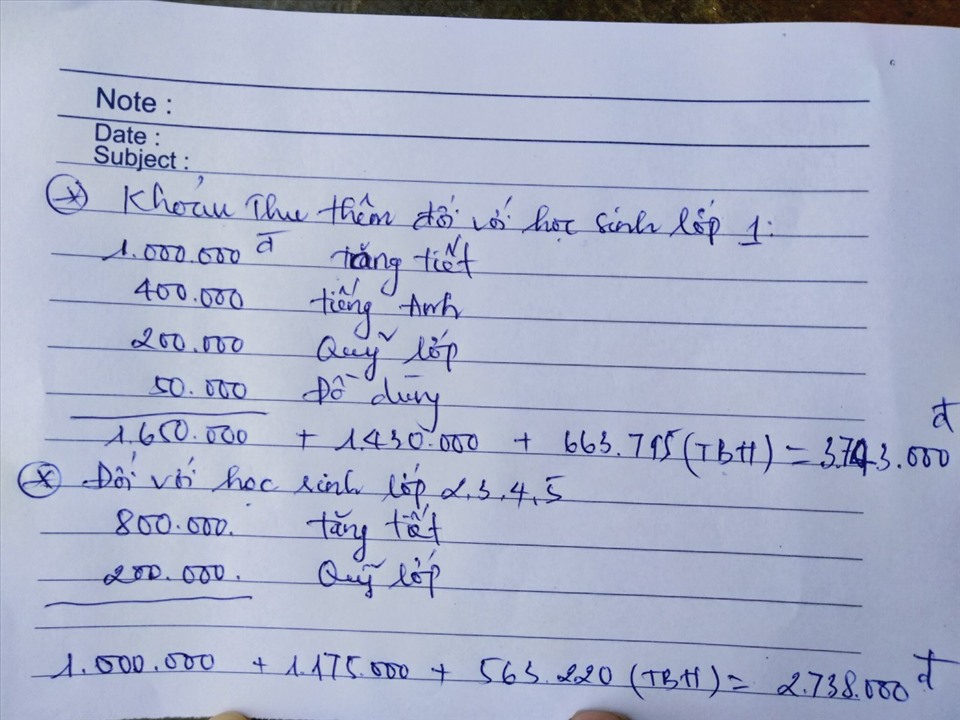 Note :
Date :
Subject :
* Khoản Thu thêm đối với học sinh lớp 1:
1.000.000 đ tăng tiết
400.000 tiếng Anh
200.000 Quỹ lớp
50.000 Đồ dùng
1.650.000 + 1.430.000 + 663.795 (TBH) = 3.743.000 đ
* Đối với học sinh lớp 2,3,4,5
800.000. tăng tiết
200.000. Quỹ lớp
1.000.000 + 1.175.000 + 563.220 (TBH) = 2.738.000 đ